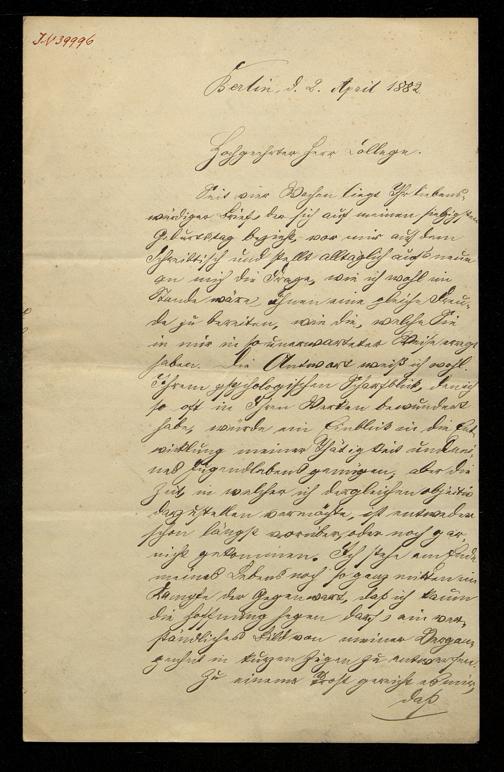 J.N 39996
Berlin, d. 2. April 1882
Hochgeehrter Herr College.
Seit vier Wochen liegt Ihr liebens-
würdiger Brief, der sich auf meinen siebzigsten
Geburtstag bezieht, vor mir auf dem
Schreibtisch und stellt alltäglich aufs neue
an mich die Frage, wie ich wohl im
Stande wäre, Ihnen eine gleiche Freu-
de zu bereiten, wie die, welche Sie
in mir in so unerwarteter Weise erregt
haben. Die Antwort weiß ich wohl.
Ihrem psychologischen Scharfblick, den ich
so oft in Ihren Werken bewundert
habe, würde ein Einblick in die Ent-
wicklung meiner Thätigkeit und mei-
nes Jugendlebens genügen, aber die
Zeit, in welcher ich dergleichen objectiv
darzustellen vermöchte, ist entweder
schon längst vorüber, oder noch gar
nicht gekommen. Ich stehe am Ende
meines Lebens noch so ganz mitten im
Kampfe der Gegenwart, daß ich kaum
die Hoffnung hegen darf, ein ver-
ständliches Bild von meiner Vergan-
genheit in kurzen Zügen zu entwerfen.
Zu einem Trost gereicht es mir,
daß